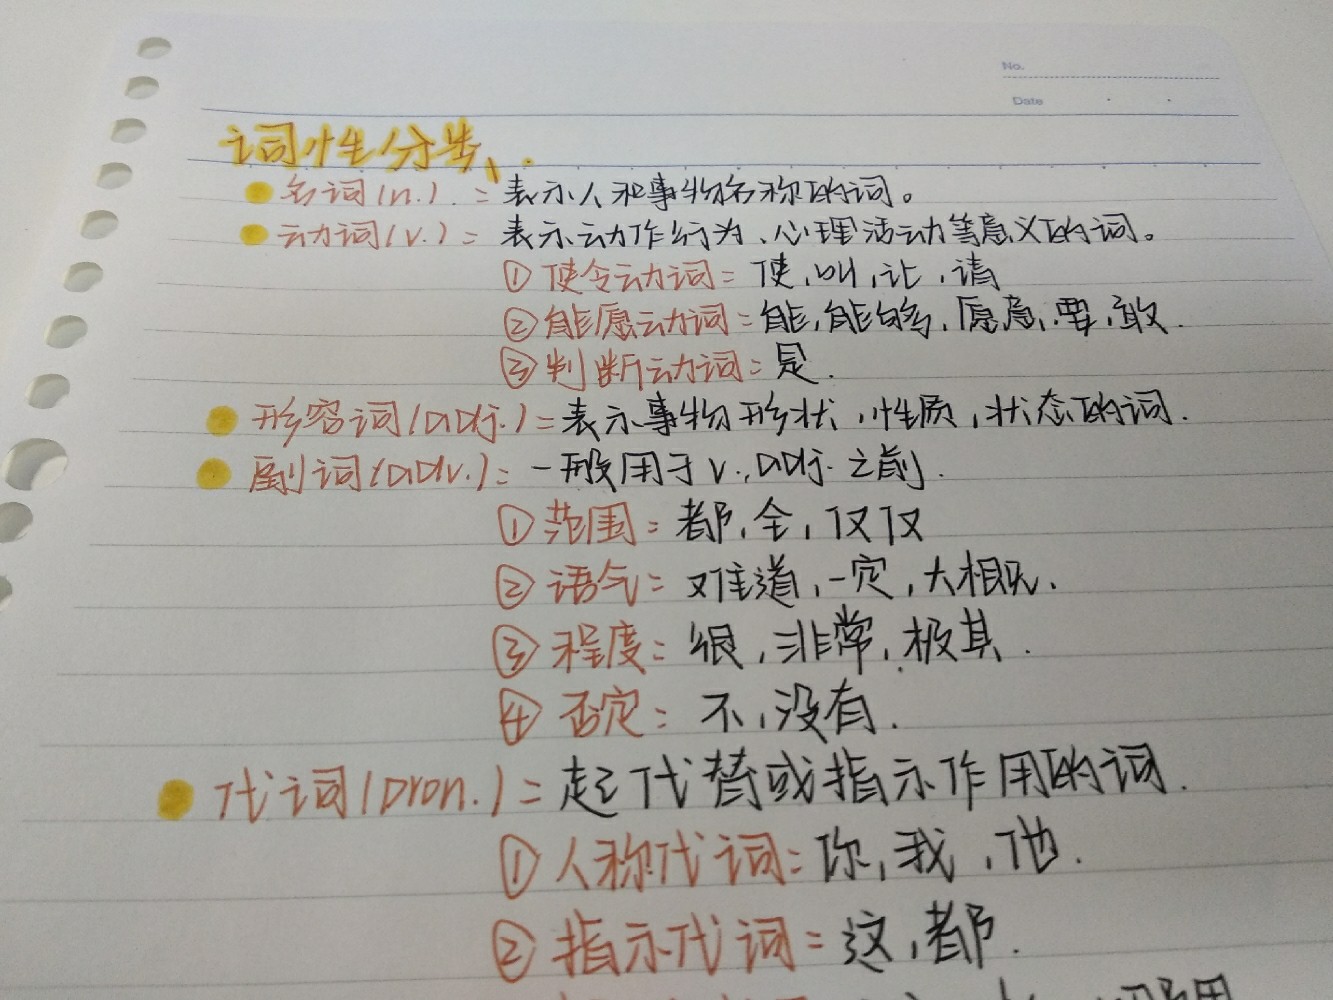 No.
Date
词性分类、.
名词(n.) = 表示人和事物名称的词。
动词(v.) = 表示动作行为、心理活动等意义的词。
① 使令动词 = 使,叫,让,请
② 能愿动词 = 能,能够,愿意,要,敢.
③ 判断动词 = 是.
形容词(adj.) = 表示事物形状,性质,状态的词.
副词(adv.) = 一般用于v.,adj.之前.
① 范围 = 都,全,仅仅
② 语气 = 难道,一定,大概.
③ 程度 = 很,非常,极其.
④ 否定 = 不,没有.
代词(pron.) = 起代替或指示作用的词.
① 人称代词 = 你,我,他.
② 指示代词 = 这,都.